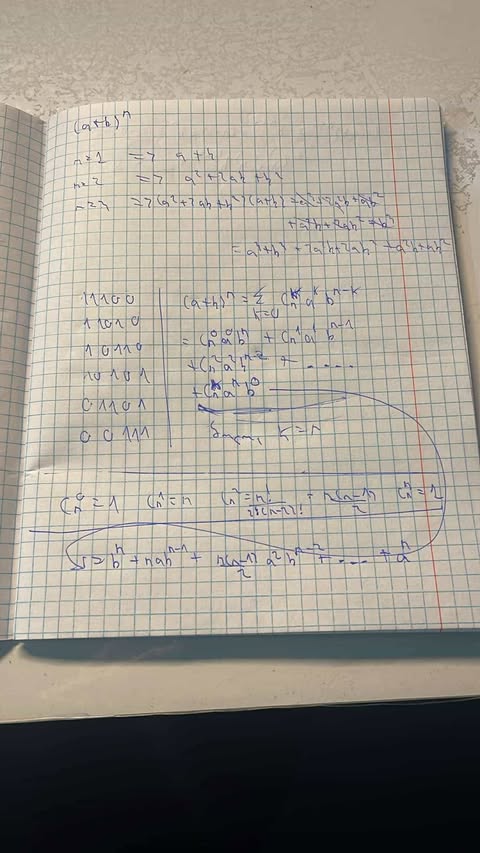 (a+b)^n
n=1 => a+b
n=2 => a²+2ab+b²
n=3 => (a²+2ab+b²)(a+b) = a³+2a²b+ab²
+a²b+2ab²+b³
= a³+b³+2a²b+2ab²+a²b+ab²
11100
11010
10110
10101
01101
00111
(a+b)^n = Σ_{k=0} C_n^k a^k b^{n-k}
= C_n^0 a^0 b^n + C_n^1 a^1 b^{n-1}
+ C_n^2 a^2 b^{n-2} + .....
+ C_n^n a^n b^0
k=n
C_n^0 = 1 C_n^1 = n C_n^2 = n!/2!(n-2)! = n(n-1)/2 C_n^n = 1
=> b^n + nab^{n-1} + n(n-1)/2 a²b^{n-2} + .... + a^n